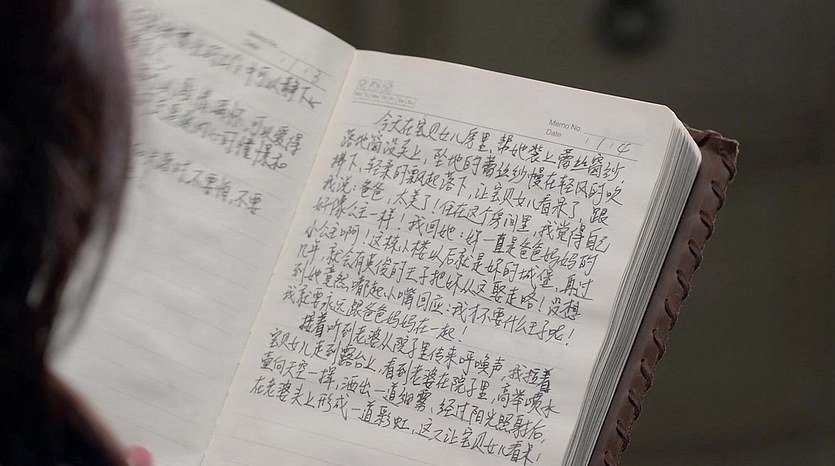 1/3
可以变得
不要怕,不要
Memo No.
Date 1/4
今天在宝贝女儿房里,帮她装上蕾丝窗纱
落地窗没关上,坠地的蕾丝纱慢在轻风的吹
拂下,轻柔的飘起落下,让宝贝女儿看呆了,跟
我说:爸爸,太美了!住在这个房间里,我觉得自己
好像公主一样!我回她:妳一直是爸爸妈妈的
小公主啊!这栋小楼以后就是妳的城堡,再过
几年,就会有英俊的王子把妳从这娶走咯!没想
到她竟然嘟起小嘴回应:我才不要什么王子呢!
我就要永远跟爸爸妈妈在一起!
接着听到老婆从院子里传来呼唤声,我拉着
宝贝女儿走到露台上,看到老婆在院子里,高举喷水
壶向天空一挥,洒出一道细雾,经过阳光照射后,
在老婆头上形成一道彩虹,这又让宝贝女儿看呆!